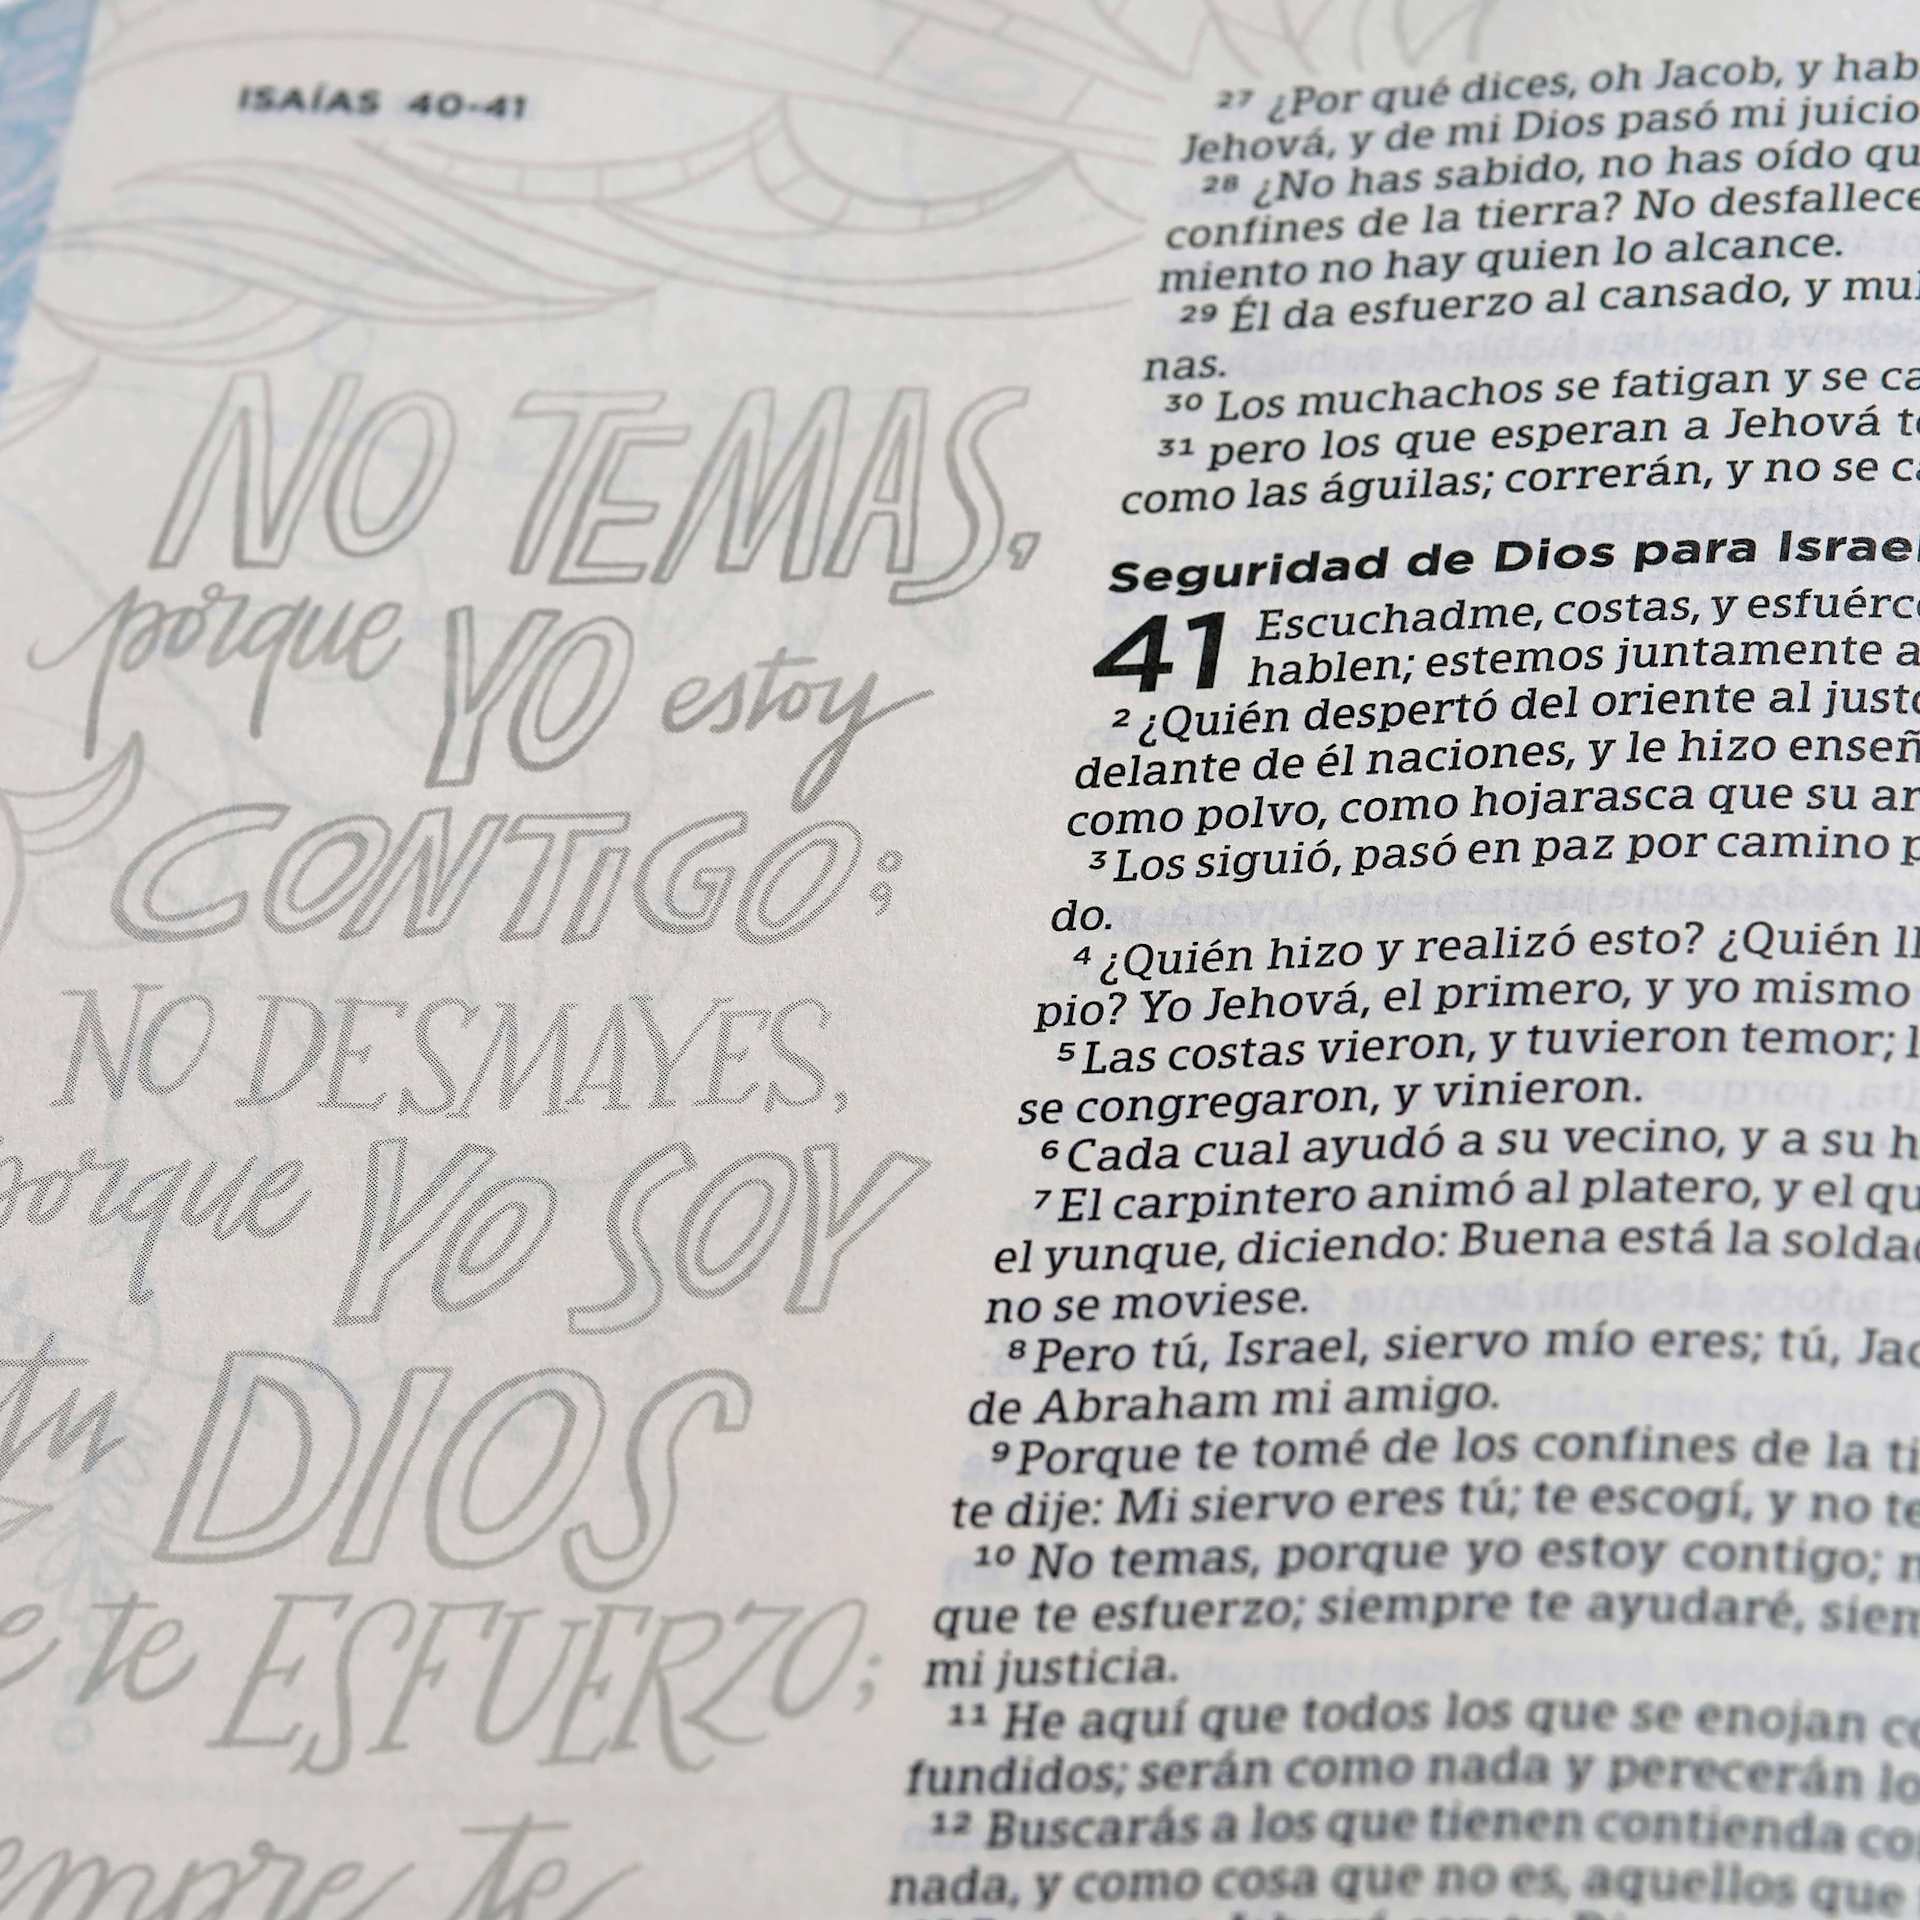 ISAÍAS 40-41
NO TEMAS,
porque YO estoy
CONTIGO;
NO DESMAYES,
porque YO SOY
tu DIOS
te ESFUERZO;
te
27 ¿Por qué dices, oh Jacob, y
Jehová, y de mi Dios pasó mi juicio
28 ¿No has sabido, no has oído
confines de la tierra? No
miento no hay quien lo alcance.
29 Él da esfuerzo al cansado, y
nas.
30 Los muchachos se fatigan y se
31 pero los que esperan a Jehová
como las águilas; correrán, y no se
Seguridad de Dios para Israel
41 Escuchadme, costas, y
hablen; estemos juntamente
2 ¿Quién despertó del oriente al
delante de él naciones, y le hizo
como polvo, como hojarasca que su
3 Los siguió, pasó en paz por camino
do.
4 ¿Quién hizo y realizó esto? ¿Quién
pio? Yo Jehová, el primero, y yo mismo
5 Las costas vieron, y tuvieron temor;
se congregaron, y vinieron.
6 Cada cual ayudó a su vecino, y a su
7 El carpintero animó al platero, y el
el yunque, diciendo: Buena está la
no se moviese.
8 Pero tú, Israel, siervo mío eres; tú,
de Abraham mi amigo.
9 Porque te tomé de los confines de la
te dije: Mi siervo eres tú; te escogí, y no te
10 No temas, porque yo estoy contigo;
que te esfuerzo; siempre te ayudaré,
mi justicia.
11 He aquí que todos los que se enojan
fundidos; serán como nada y perecerán
12 Buscarás a los que tienen contienda
nada, y como cosa que no es, aquellos que